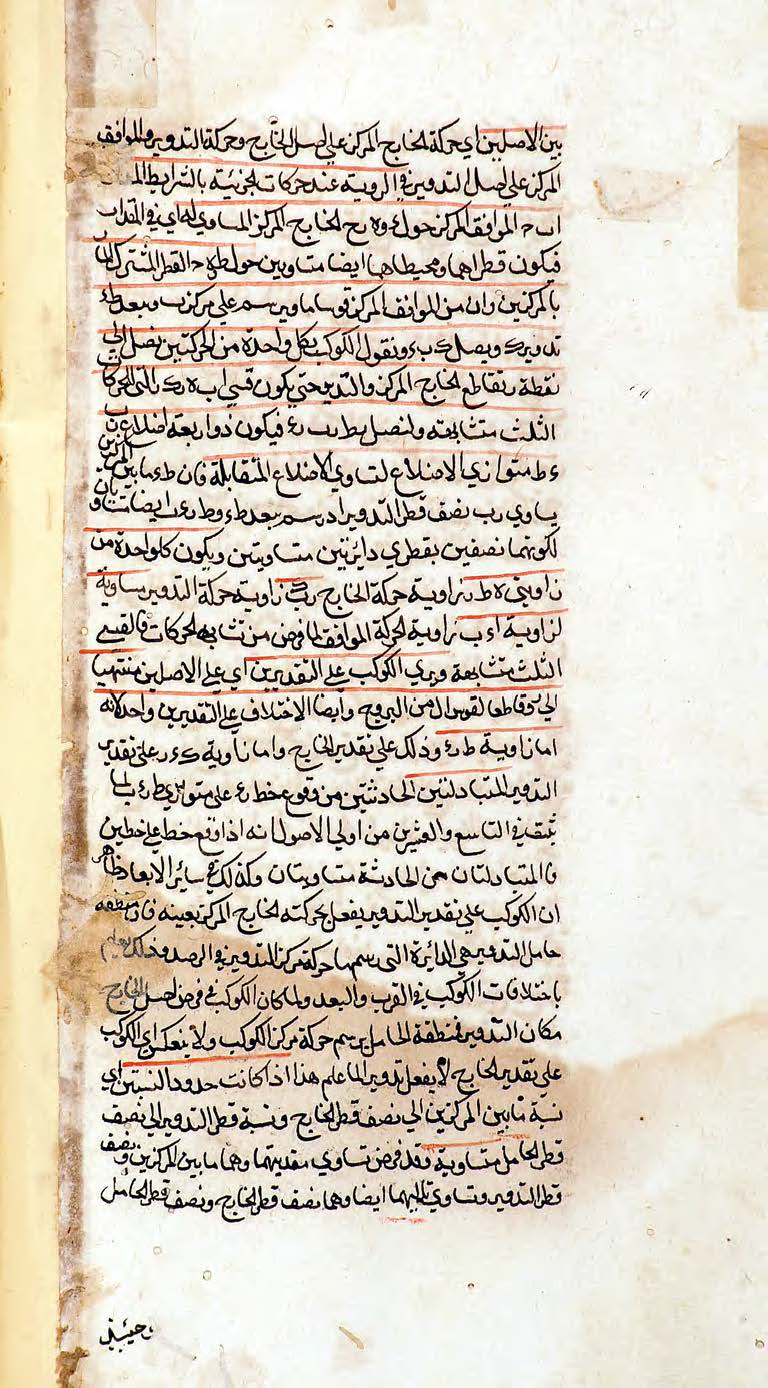 بين الاصلين اي حركة الخارج المركز علي اصل الخارج وحركة التدوير والموافق
المركز علي اصل التدوير في الروية عند حركات الجزئية بالشرايط
اب ح الموافق المركز حول ء و ه ر ح الخارج المركز المساوي له اي في المقدار
فيكون قطراهما ومحيطاهما ايضا متساويين حول ط و ه ح القطر المشترك المار
بالمركزين وا ب من الموافق المركز قوسا ما ويرسم علي مركز ب وببعد ط ء
تدوير ك ويصل ك ب ء ونقول الكوكب بكل واحدة من الحركتين يصل الي
نقطة ر تقاطع الخارج المركز والتدوير حتي يكون قسي ا ب ه ر ك ر التي للحركات
الثلث متشابهة ولنصل ر ط ر ب ر ء فيكون ذو اربعة اضلاع ر ب
ء ط متوازي الاضلاع لتساوي الاضلاع المتقابلة فان ط ء ما بين المركزين
يساوي ر ب نصف قطر التدوير اذ رسم ببعد ط ء و ط ر ء ب ايضا متساويان
لكونهما نصفين بقطري دائرتين متساويتين ويكون كل واحدة من
زاويتي ه ط ر زاوية حركة الخارج ر ب ك زاوية حركة التدوير مساوية
لزاوية ا ء ب زاوية الحركة الموافق لما فرض من تشابه الحركات فالقسي
الثلث متشابهة ويري الكوكب علي التقديرين اي علي الاصلين منتهيا
الي ر وقاطعا لقوس ال من البروج وايضا الاختلاف علي التقديرين واحد لانه
اما زاوية ط ر ء وذلك علي تقدير الخارج واما زاوية ك ء ر علي تقدير
التدوير المتبادلتين الحادثتين من وقوع خط ر ء علي متوازيي ط ر ء ب لما
ثبت في التاسع والعشرين من اولي الاصول انه اذا وقع خط علي خطين
فالمتبادلتان من الحادثة متساويتان وكذلك في سائر الابعاد ظاهر
ان الكوكب علي تقدير التدوير يفعل بحركته الخارج المركز بعينه فان منطقة
حامل التدوير هي الدائرة التي رسمها حركة مركز التدوير في الرصد وذلك يعلم
باختلافات الكوكب في القرب والبعد ولما كان الكوكب في فرض اصل الخارج
مكان التدوير فمنطقة الحامل يرسم حركة مركز الكوكب ولا ينعكس اي الكوكب
علي تقدير الخارج لا يفعل تدوير الما علم هذا اذا كانت حدود النسبتين اي
نسبة ما بين المركزين الي نصف قطر الخارج ونسبة قطر التدوير الي نصف
قطر الحامل متساوية فقد فرض تساوي مقدميهما وهما ما بين المركزين ونصف
قطر التدوير وتساوي تاليهما ايضا وهما نصف قطر الخارج ونصف قطر الحامل